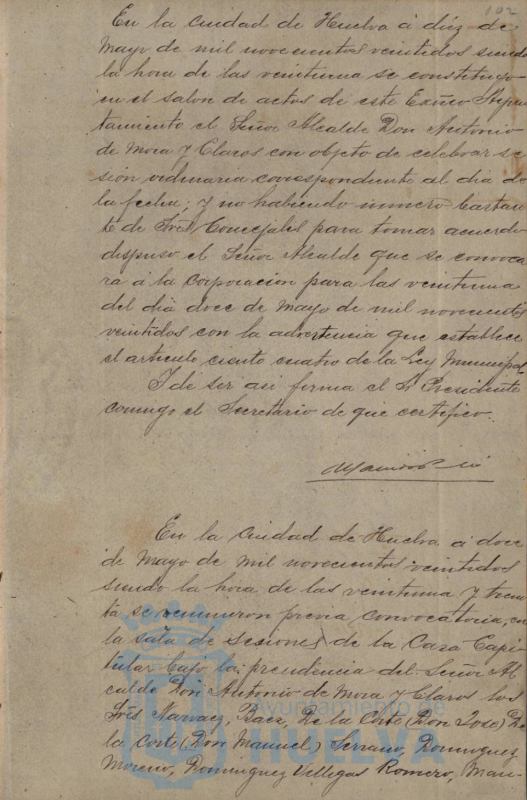 102
En la ciudad de Huelva á diéz de
Mayo de mil novecientos veintidos siendo
la hora de las veintiuna se constituyo
en el salon de actos de este Exmo Ayun
tamiento el Señor Alcalde Don Antonio
de Mora y Claros con objeto de celebrar se
sion ordinaria correspondiente al dia de
la fecha; y no habiendo número bastan
te de Srés Concejales para tomar acuerdo
dispuso el Señor Alcalde que se convoca
ra á la corporación para las veintiuna
del dia doce de Mayo de mil novecientos
veintidos con la advertencia que establece
el articulo ciento cuatro de la Ley Municipal
Y de ser asi firma el Sr Presidente
comigo el Secretario de que certifico.
En la ciudad de Huelva á doce
de Mayo de mil novecientos veintidos
siendo la hora de las veintiuna y trein
ta se reunieron previa convocatoria, en
la sala de sesiones de la Casa Capi
tular bajo la presidencia del Señor Al
calde Don Antonio de Mora y Claros los
Srés Narvaez, Baez, De la Corte (Don José) De
la Corte (Don Manuel) Serrano, Dominguez
Moreno, Dominguez Villegas Romero, Man-
Ayuntamiento de
HUELVA